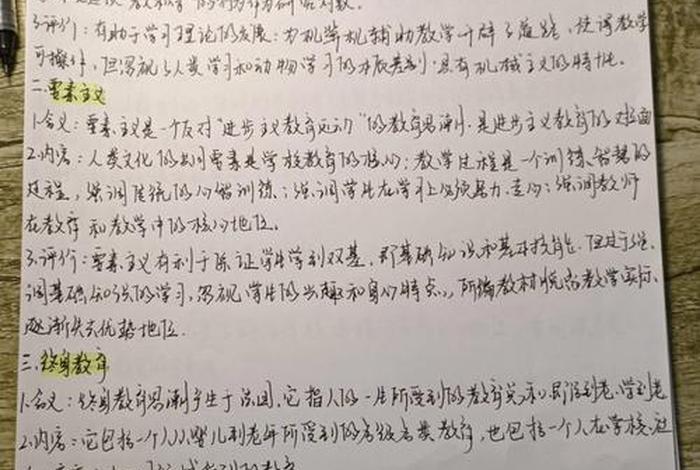 3.评价：有助于学习理论的发展：为机器机辅助教学开辟了道路，使得教学
可操作，但忽视了人类学习和动物学习的本质差别，具有机械主义的特性。
二.要素主义
1.含义：要素主义是一个反对"进步主义教育运动"的教育思潮，是进步主义教育的对立面
2.内容：人类文化的共同要素是学校教育的核心；教学过程是一个训练智慧的
过程，强调传统的心智训练；强调学生在学习上必须努力、专心；强调教师
在教育和教学中的核心地位。
3.评价：要素主义有利于保证学生学到双基，即基础知识和基本技能。但过于强
调基础知识的学习，忽视学生的兴趣和身心特点，所编教材脱离教学实际，
逐渐失去优势地位.
三.终身教育
1.含义：终身教育思潮产生于法国，它指人的一生所受到的教育总和，即活到老，学到老
2.内容：它包括一个人从婴儿到老年所受到的各级各类教育，也包括一个人在学校、社